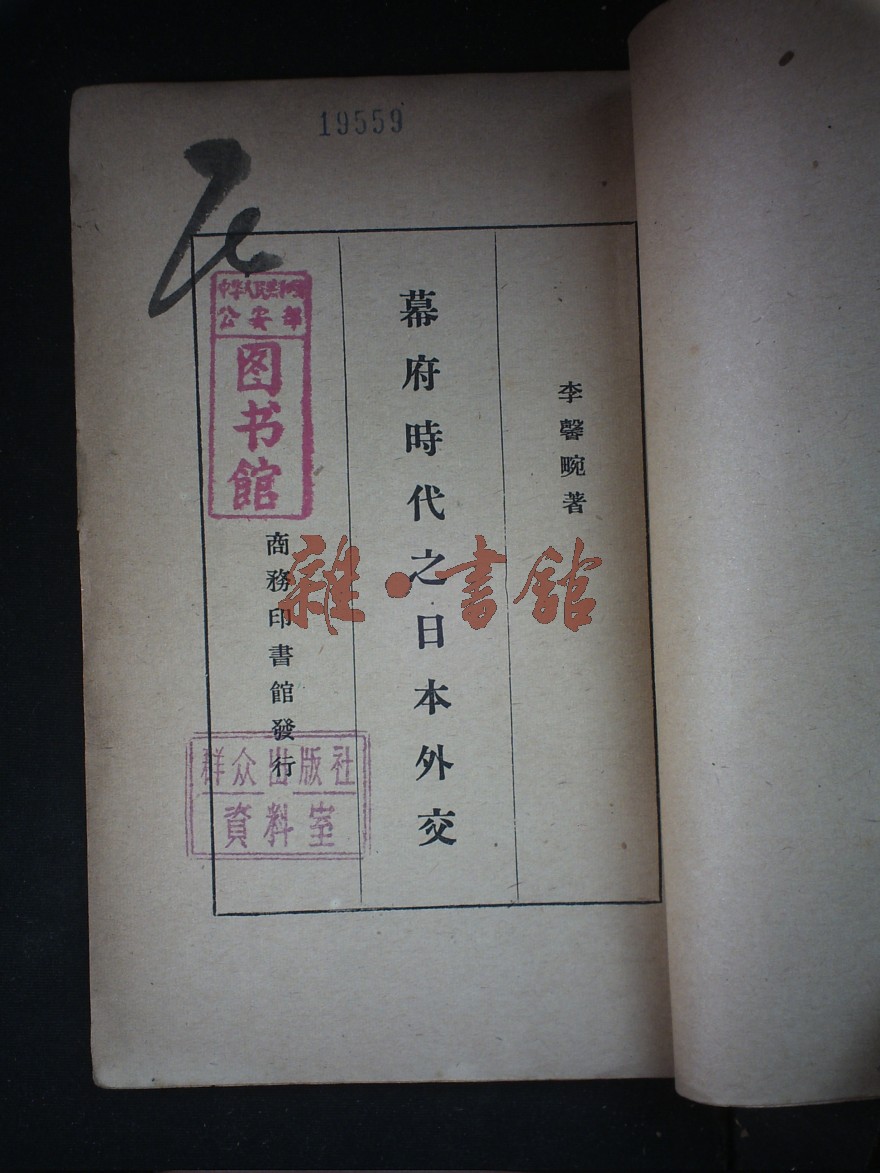 19559
李馨畹著
幕府時代之日本外交
商務印書館發行
中华人民共和国
公安部
图书馆
群众出版社
資料室
雜·書館